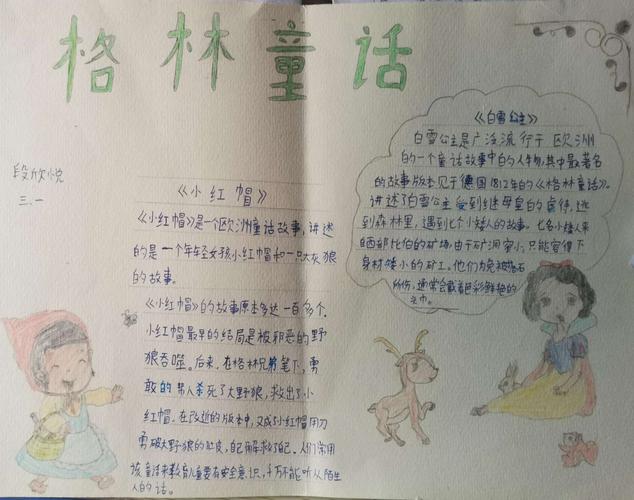 格林童话
段欣悦
三.一
《小红帽》
《小红帽》是一个欧洲童话故事,讲述
的是一个年轻女孩小红帽和一只大灰狼
的故事。
《小红帽》的故事原本多达一百多个.
小红帽最早的结局是被邪恶的野
狼吞噬。后来.在格林兄弟笔下,勇
敢的男人杀死了大野狼,救出了小
红帽.在改进的版本中,又成了小红帽用刀
破大野狼的肚皮,自己解救了自己.人们常用
该童话来教育儿童要有安全意识,千万不能听从陌生
人的话。
《白雪公主》
白雪公主是广泛流行于欧洲
的一个童话故事中的人物,其中最著名
的故事版本见于德国1812年的《格林童话》。
讲述了白雪公主受到继母皇的虐待,逃
到森林里,遇到七个小矮人的故事。七名小矮人来
西部比伯的矿场,由于矿洞窄小,只能容得下
身材矮小的矿工。他们为免被落石
所伤,通常会戴着色彩鲜艳的
头巾。